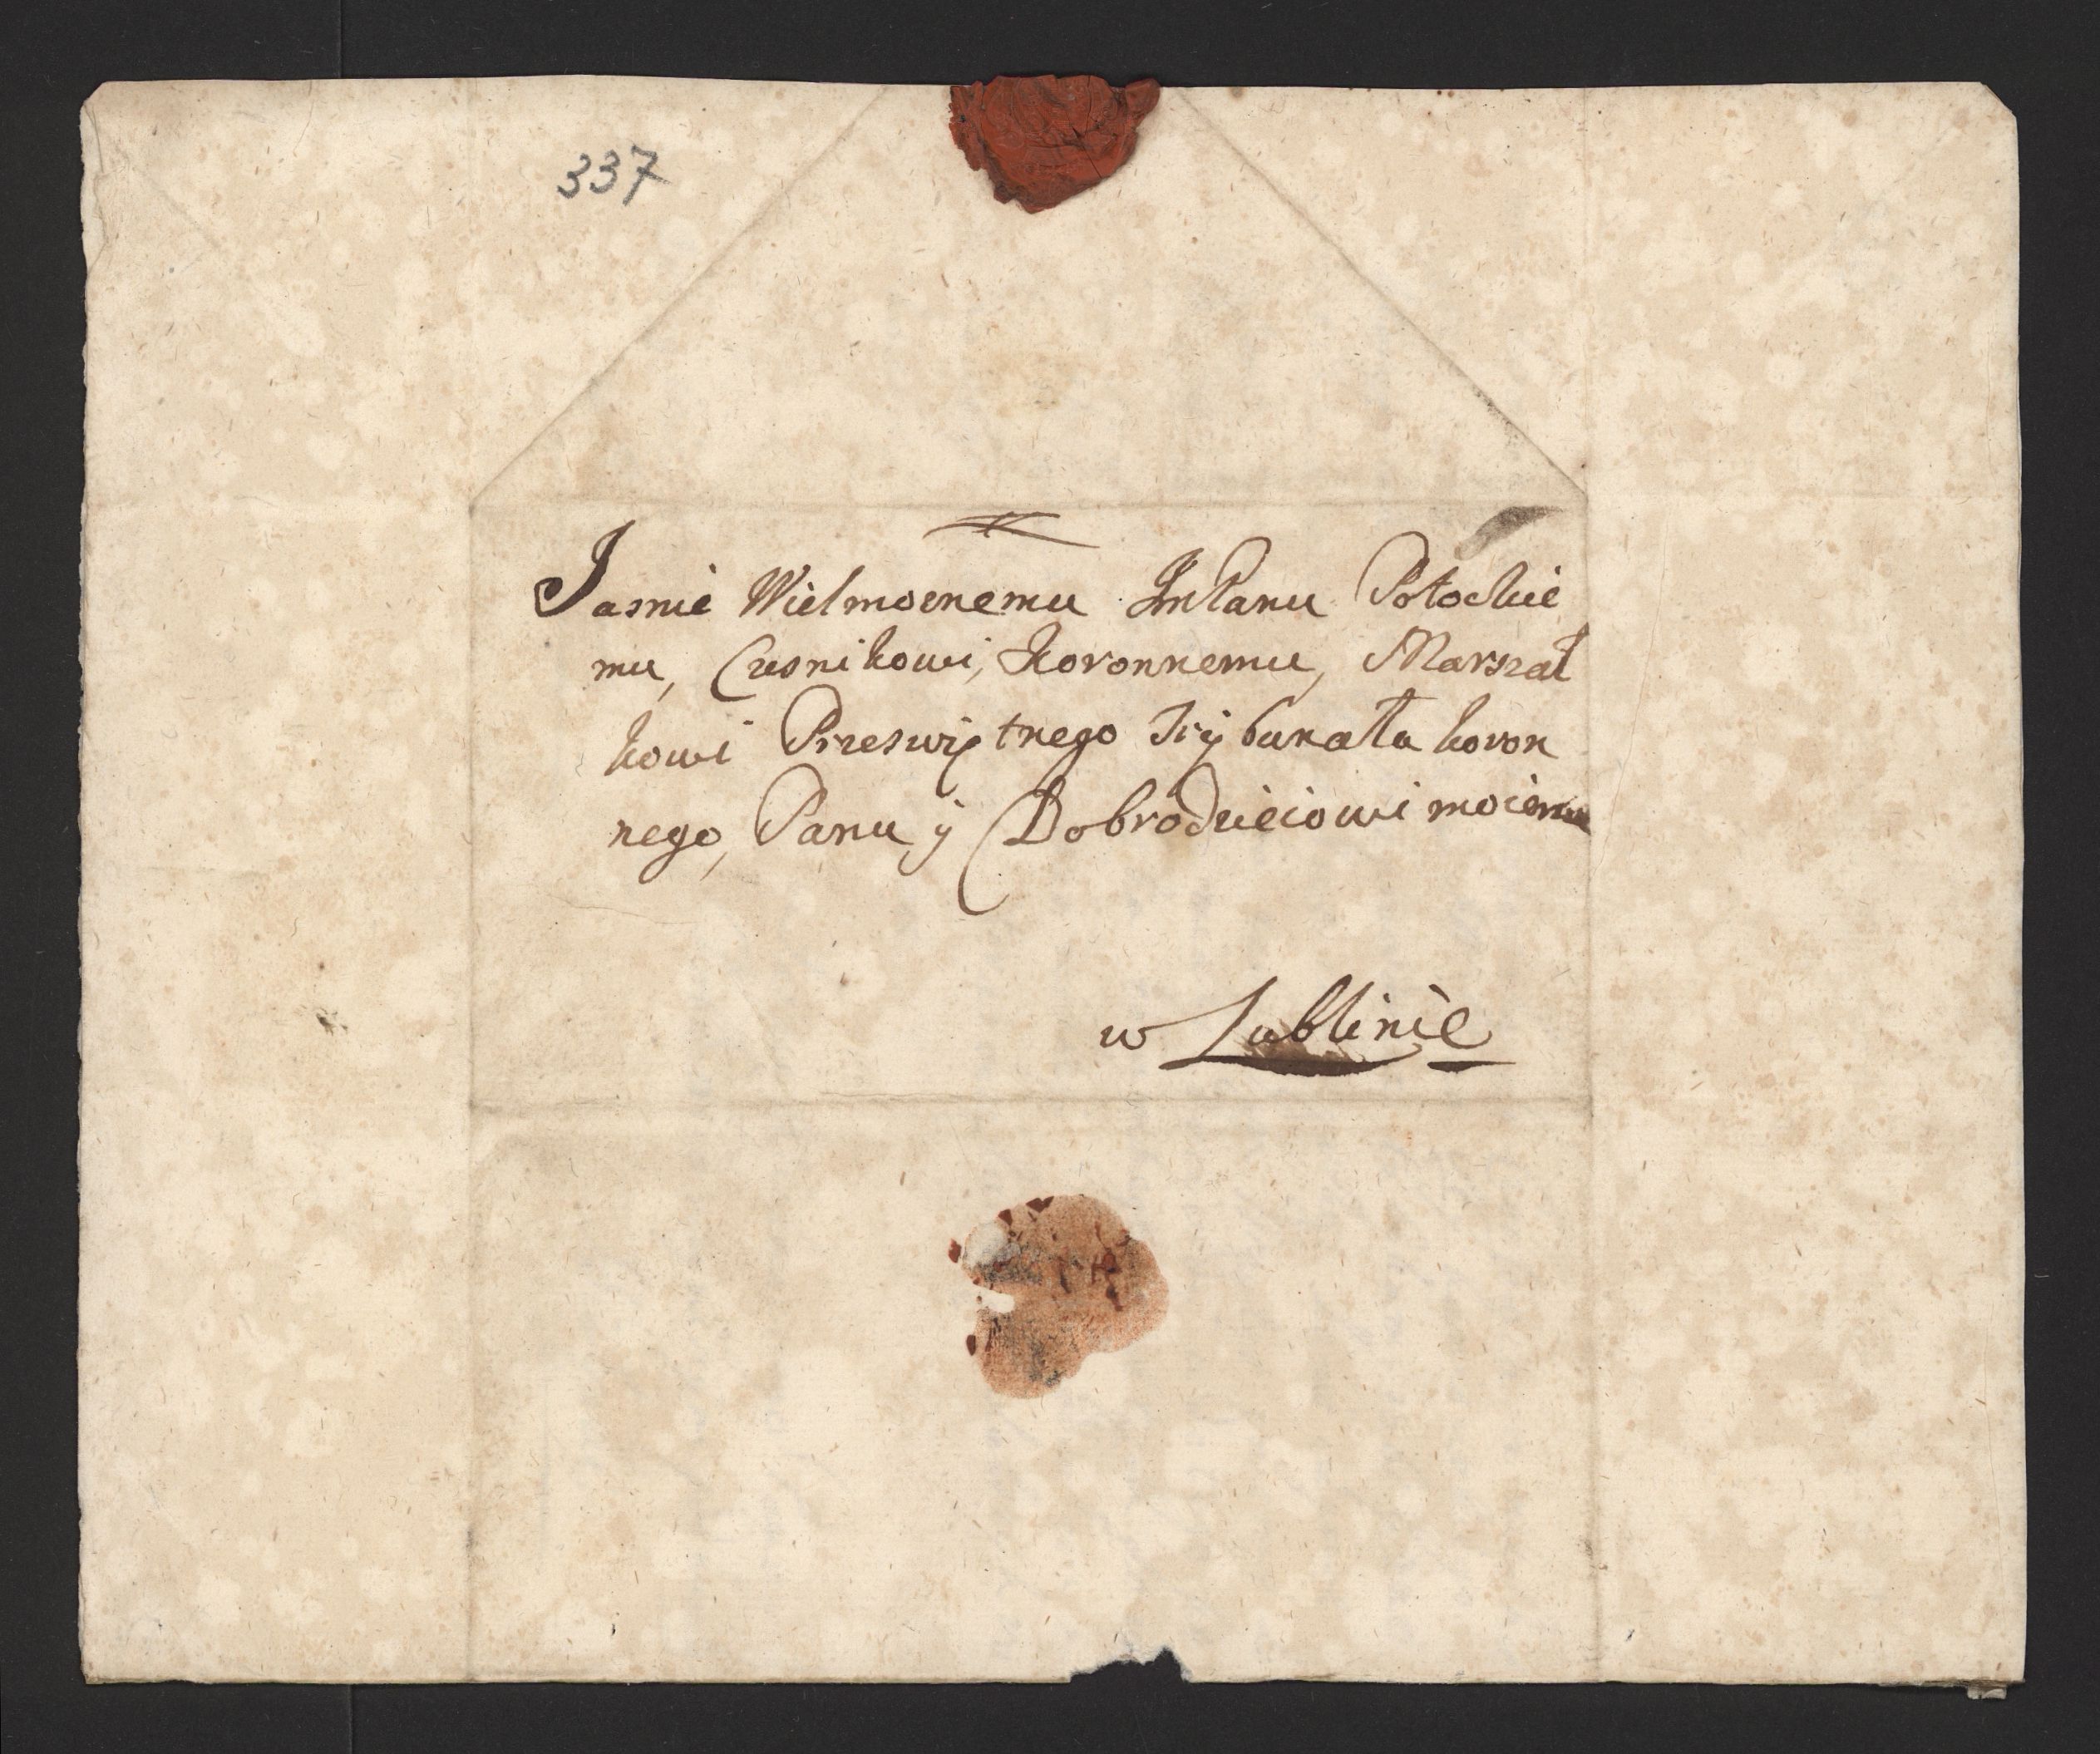 337
Jasnie Wielmoznemu JmPanu Potockie
mu, Czesnikowi, Koronnemu, Marszał
kowi Przeświętnego Trÿbunału koron
nego, Panu ÿ Dobrodzieiowi moiemu
w Lublinie